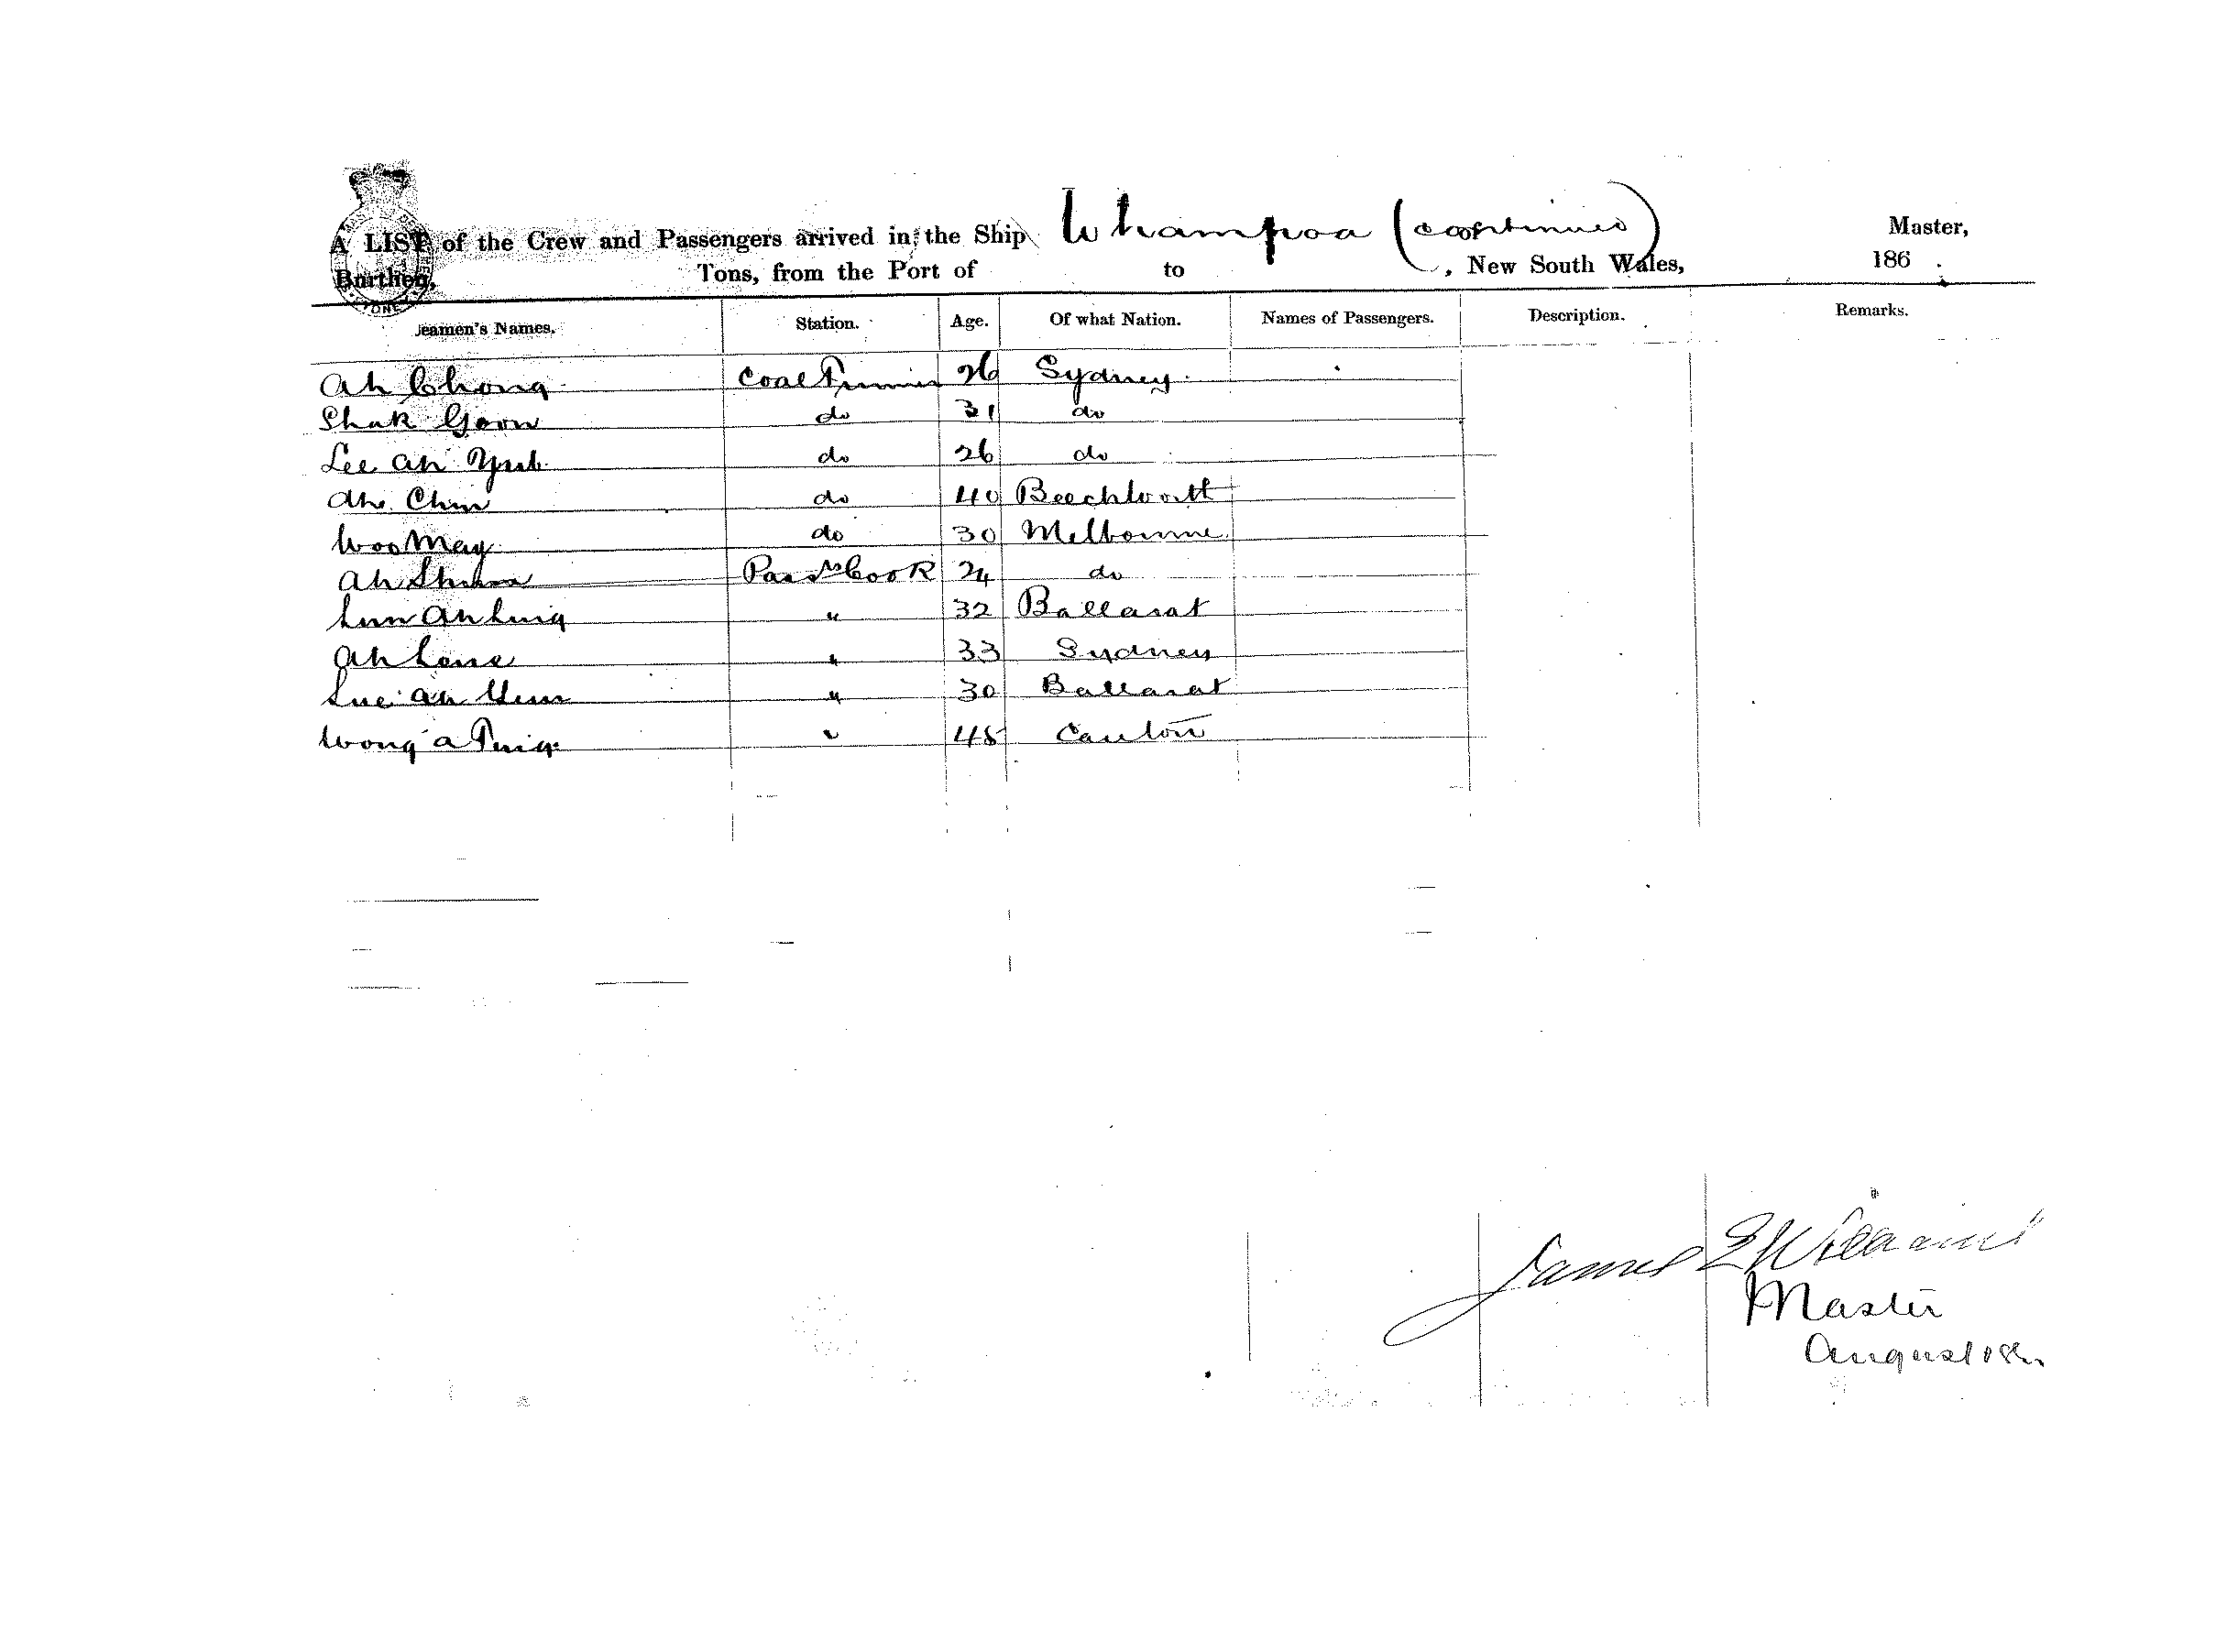 A LIST of the Crew and Passengers arrived in the Ship Whampoa (continued) Master,
Burthen, Tons, from the Port of to , New South Wales, 186 .
Seamen's Names. Station. Age. Of what Nation. Names of Passengers. Description. Remarks.
Ah Chong Coal Trimmer 26 Sydney
Shak Goon do 31 do
Lee Ah do 26 do
Ah Chin do 40 Beechworth
Woo May do 30 Melbourne
Ah Pass Cook 24 do
Ah " 32 Ballarat
Ah " 33 Sydney
Sue Ah " 30 Ballarat
Wong a " 45 Canton
James E Williams
Master
August